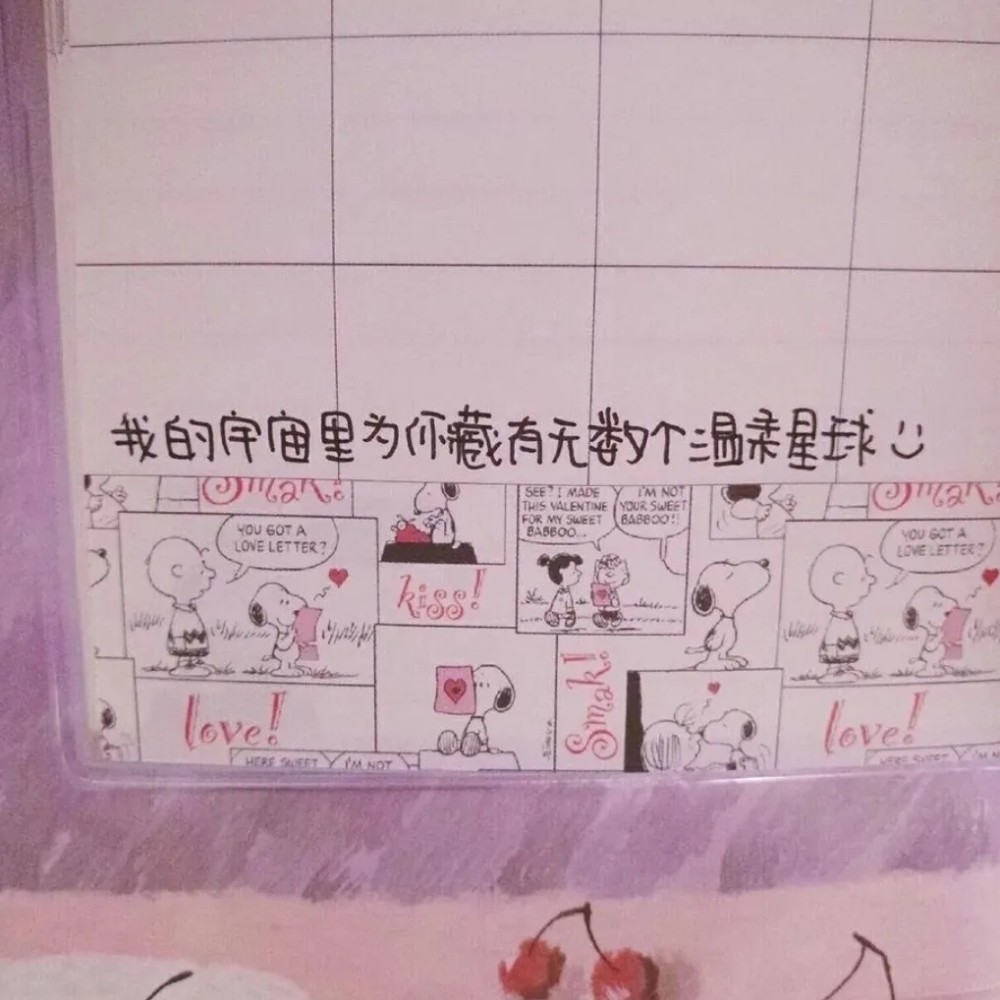 我的宇宙里为你藏有无数个温柔星球
Smak!
SEE? I MADE
THIS VALENTINE
FOR MY SWEET
BABBOO...
I'M NOT
YOUR SWEET
BABBOO!!
Smak!
YOU GOT A
LOVE LETTER?
kiss!
YOU GOT A
LOVE LETTER?
Smak!
love!
love!
HERE SWEET
I'M NOT
HERE SWEET